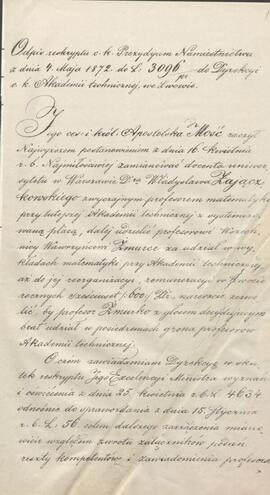 Odpis reskryptu c. k. Prezydyum Namiestnictwa
z dnia 4. Maja 1872. do L. 3096/pr do Dyrekcyi
c. k. Akademii technicznej we Lwowie.
Jego ces. i król. Apostolska Mość raczył
Najwyższem postanowieniem z dnia 16. kwietnia
r. b. Najmiłościwiej zamianować docenta uniwer-
sytetu w Warszawie Dra Władysława Zającz-
kowskiego zwyczajnym profesorem matematyki
przy tutejszej Akademii technicznej z systemizo-
waną płacą, dalej udzielić profesorowi Wszech-
nicy Wawrzyńcowi Żmurce za udział w wy-
kładach matematyki przy Akademii technicznej
aż do jej reorganizacyi, remuneracyi w kwocie
rocznych sześciuset /600/ Złr., nareszcie zezwo-
lić, by profesor Żmurko z głosem decydującym
brał udział w posiedzeniach grona profesorów
Akademii technicznej.
O czem zawiadamiam Dyrekcyę w sku-
tek reskryptu Jego Excelencyi Ministra wyznań
i oświecenia z dnia 25. kwietnia r. b. L. 4634
odnośnie do sprawozdania z dnia 15. Stycznia
r. b. L. 56. celem dalszego zarządzenia miano-
wicie względem zwrotu załączników podań
reszty kompetentów i zawiadomienia profesora